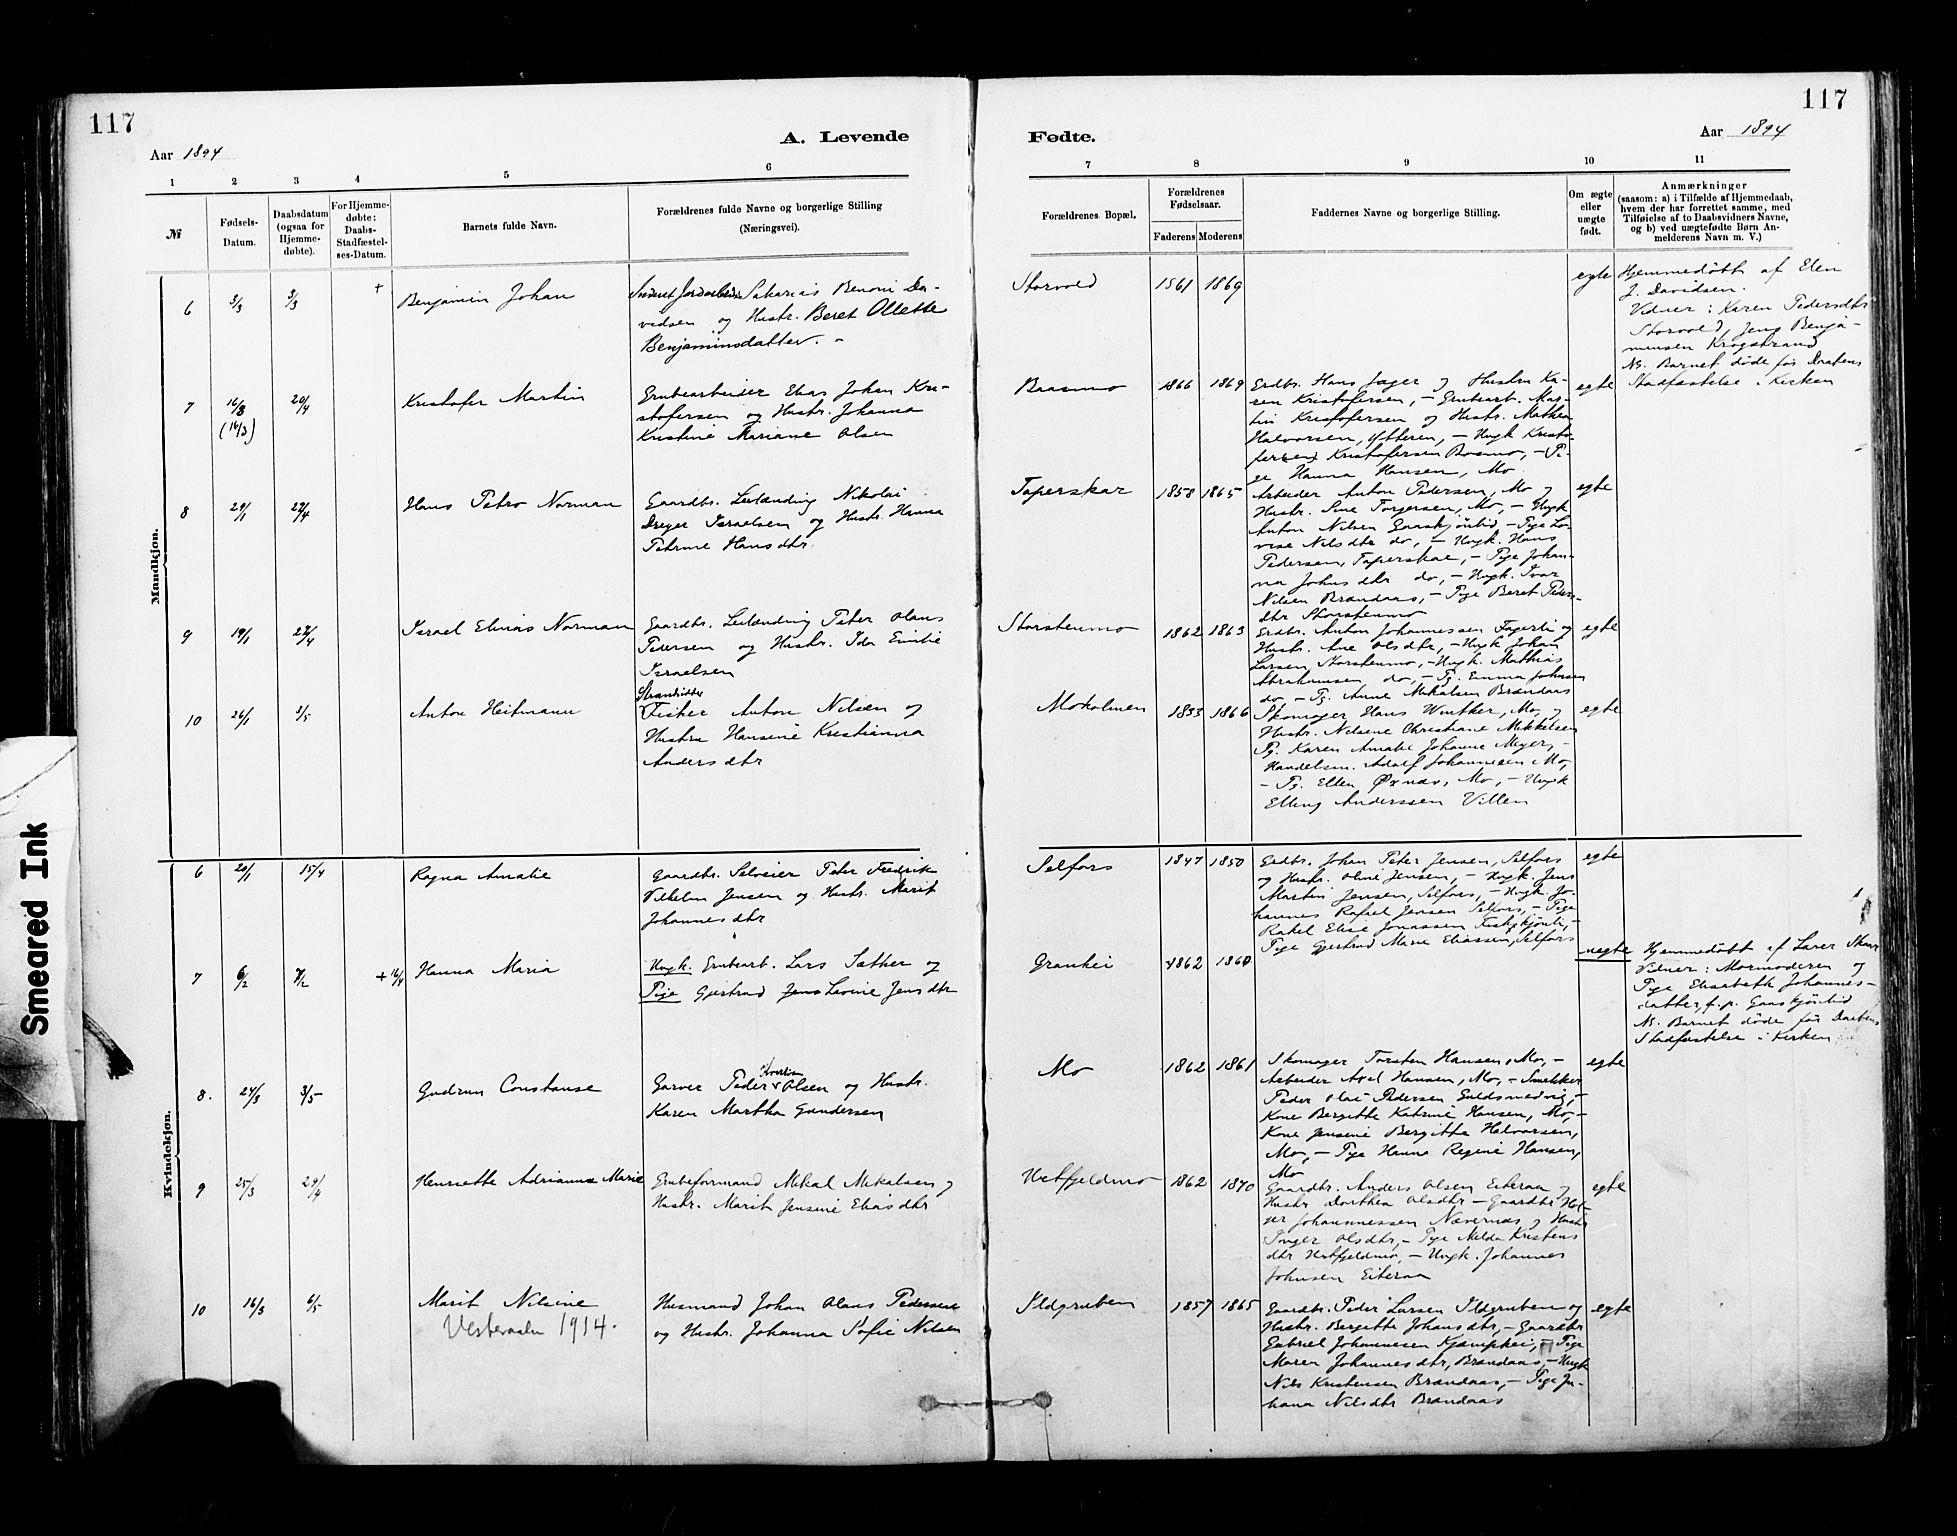 117
117
A. Levende
Fødte.
Aar 1894
Aar 1894
1 2 3 4 5 6
7 8 9 10 11
№
Fødsels-
Datum.
Daabsdatum
(ogsaa for
Hjemme-
døbte).
For Hjemme-
døbte:
Daabs-
Stadfæstel-
ses-Datum.
Barnets fulde Navn.
Forældrenes fulde Navne og borgerlige Stilling
(Næringsvei).
Forældrenes Bopæl.
Forældrenes
Fødselsaar.
Faderens
Moderens
Faddernes Navne og borgerlige Stilling.
Om ægte
eller
uægte
født.
Anmærkninger
(saasom: a) i Tilfælde af Hjemmedaab,
hvem der har forrettet samme, med
Tilføielse af to Daabsvidners Navne,
og b) ved uægtefødte Børn An-
melderens Navn m. V.)
Mandkjøn.
6
3/3
3/3
+
Benjamin Johan
Sakarias Benoni Da-
vidsen og Hustr. Beret Ollette
Benjaminsdatter.
Storvold
1861
1869
egte
Hjemmedøbt af Elen
J. Davidsen.
Vidner: Karen Pedersdtr
Storvold, Jens Benja-
minsen Krogstrand
Ns. Barnet døde før Daabens
Stadfæstelse i Kirken
7
16/3
(16/3)
20/4
Kristofer Martin
Grubearbeider Elias Johan Kri-
stofersen og Hustr. Johanna
Kristine Mariane Olsen
Baasmo
1866
1869
Grdbr. Hans Jæger og Hustru Ka-
ren Kristofersen, - Grubearb. Mar-
tin Kristofersen og Hustr. Mathea
Halvorsen, Ytteren, - Ungk Kristo-
fersen Kristofersen Bosmo, - Pi-
ge Hanna Hansen, Mo.
egte
8
29/1
29/4
Hans Petro Norman
Gaardbr. Leilænding Nikolai
Dreyer Israelsen og Hustr. Hanna
Petrine Hansdtr.
Taperskar
1858
1865
Arbeider Anton Pedersen, Mo og
Hustr. Sine Torgersen, Mo, - Ungk
Anton Nilsen Gaaskjønlid, - Pige Lo-
vise Nilsdtr do, - Ungk. Hans
Pedersen, Taperskar, - Pige Johan-
na Johnsdtr do, - Ungk. Ivar
Nilsen Brændaas, - Pige Beret Peders-
dtr Storstenmo
egte
9
19/1
29/4
Israel Elinas Norman
Gaardbr. Leilænding Peter Olaus
Pedersen og Hustr. Ida Emilie
Israelsen
Storstenmo
1862
1863
Grdbr. Anton Johannessen Fagerli og
Hustr. Ane Olsdtr, - Ungk Johan
Larsen Storstenmo, - Ungk. Mathias
Abrahamsen do, - Pg. Emma Johnsen
do, - Pg. Anne Mikalsen Brændaas
egte
10
26/1
3/5
Anton Heitmann
Strandsidder
Fisker Anton Nilsen og
Hustru Hansine Kristianna
Andersdtr
Moholmen
1833
1866
Skomager Hans Winther, Mo, og
Hustr. Nilsene Christiane Mikkelsen
Pg. Karen Amalie Johanne Meyer, -
Handelsm. Adolf Johannesen Mo,
- Pg. Ellen Øxnæs, Mo, - Ungk
Elling Anderssen Villen
egte
Kvindekjøn.
6
29/1
15/4
Ragna Amalie
Gaardbr. Selveier Peter Fredrik
Vilhelm Jensen og Hustr. Marit
Johannesdtr
Selfors
1847
1850
Grdbr. Johan Peter Jensen, Selfors
og Hustr. Oline Jensen, - Ungk. Jens
Martin Jensen, Selfors, - Ungk. Jo-
hannes Rafael Jensen Selfors, - Pige
Rakel Elise Jonassen
Pige Gjertrud Marie Eliassen, Selfors
egte
7
6/2
7/2
+ 16/4
Hanna Maria
Ungk. Grubearb. Lars Sæther og
Pige Gjertrud Jens Lovine Jensdtr
Granhei
1862
1860
uegte
Hjemmedøbt af Larer
Vidner: Mormoderen og
Pige Elisabeth Johannes-
datter, f.p. Gaaskjønlid
Ns. Barnet døde før Daabens
Stadfæstelse i Kirken
8.
24/3
3/5
Gudrun Constanse
Garver Peder Olsen og Hustr.
Karen Martha Gundersen
Mo
1862
1861
Skomager Torsten Hansen, Mo, -
Arbeider Axel Hansen, Mo, - Snekker
Peder Olai Pedersen Guldsmedvig, -
Kone Bergitte Katrine Hansen, Mo, -
Kone Jensine Bergitte Halvorsen,
Mo, - Pige Hanna Regine Hansen,
Mo
egte
9
25/3
29/4
Henriette Adrianna Marie
Grubeformand Mikal Mikalsen og
Hustr. Marit Jensine Eliasdtr
Urtfjeldmo
1862
1870
Gaardbr. Anders Olsen Eiteraa og
Hustr Dorthea Olsdtr - Gaardbr Hol-
ger Johannessen Nævernes og Hustr
Inger Olsdtr, - Pige Nilda Kristens
dtr Urtfjeldmo, - Ungk. Johannes
Johnsen Eiteraa
egte
10
16/3
6/5
Marit Nilsine
Vesteraali 1914.
Husmand Johan Olaus Pedersen
og Hustr. Johanna Sofie Nilsen
Ildgruben
1857
1865
Gaardbr. Peder Larsen Ildgruben og
Hustr. Bergitte Johansdtr, - Gaardbr
Gabriel Johannesen Kjæmphei, - Pige
Maren Johannesdtr, Brændaas, - Ungk
Nils Kristensen Brændaas, - Pige Jo-
hana Nilsdtr Brændaas
egte
Smeared Ink